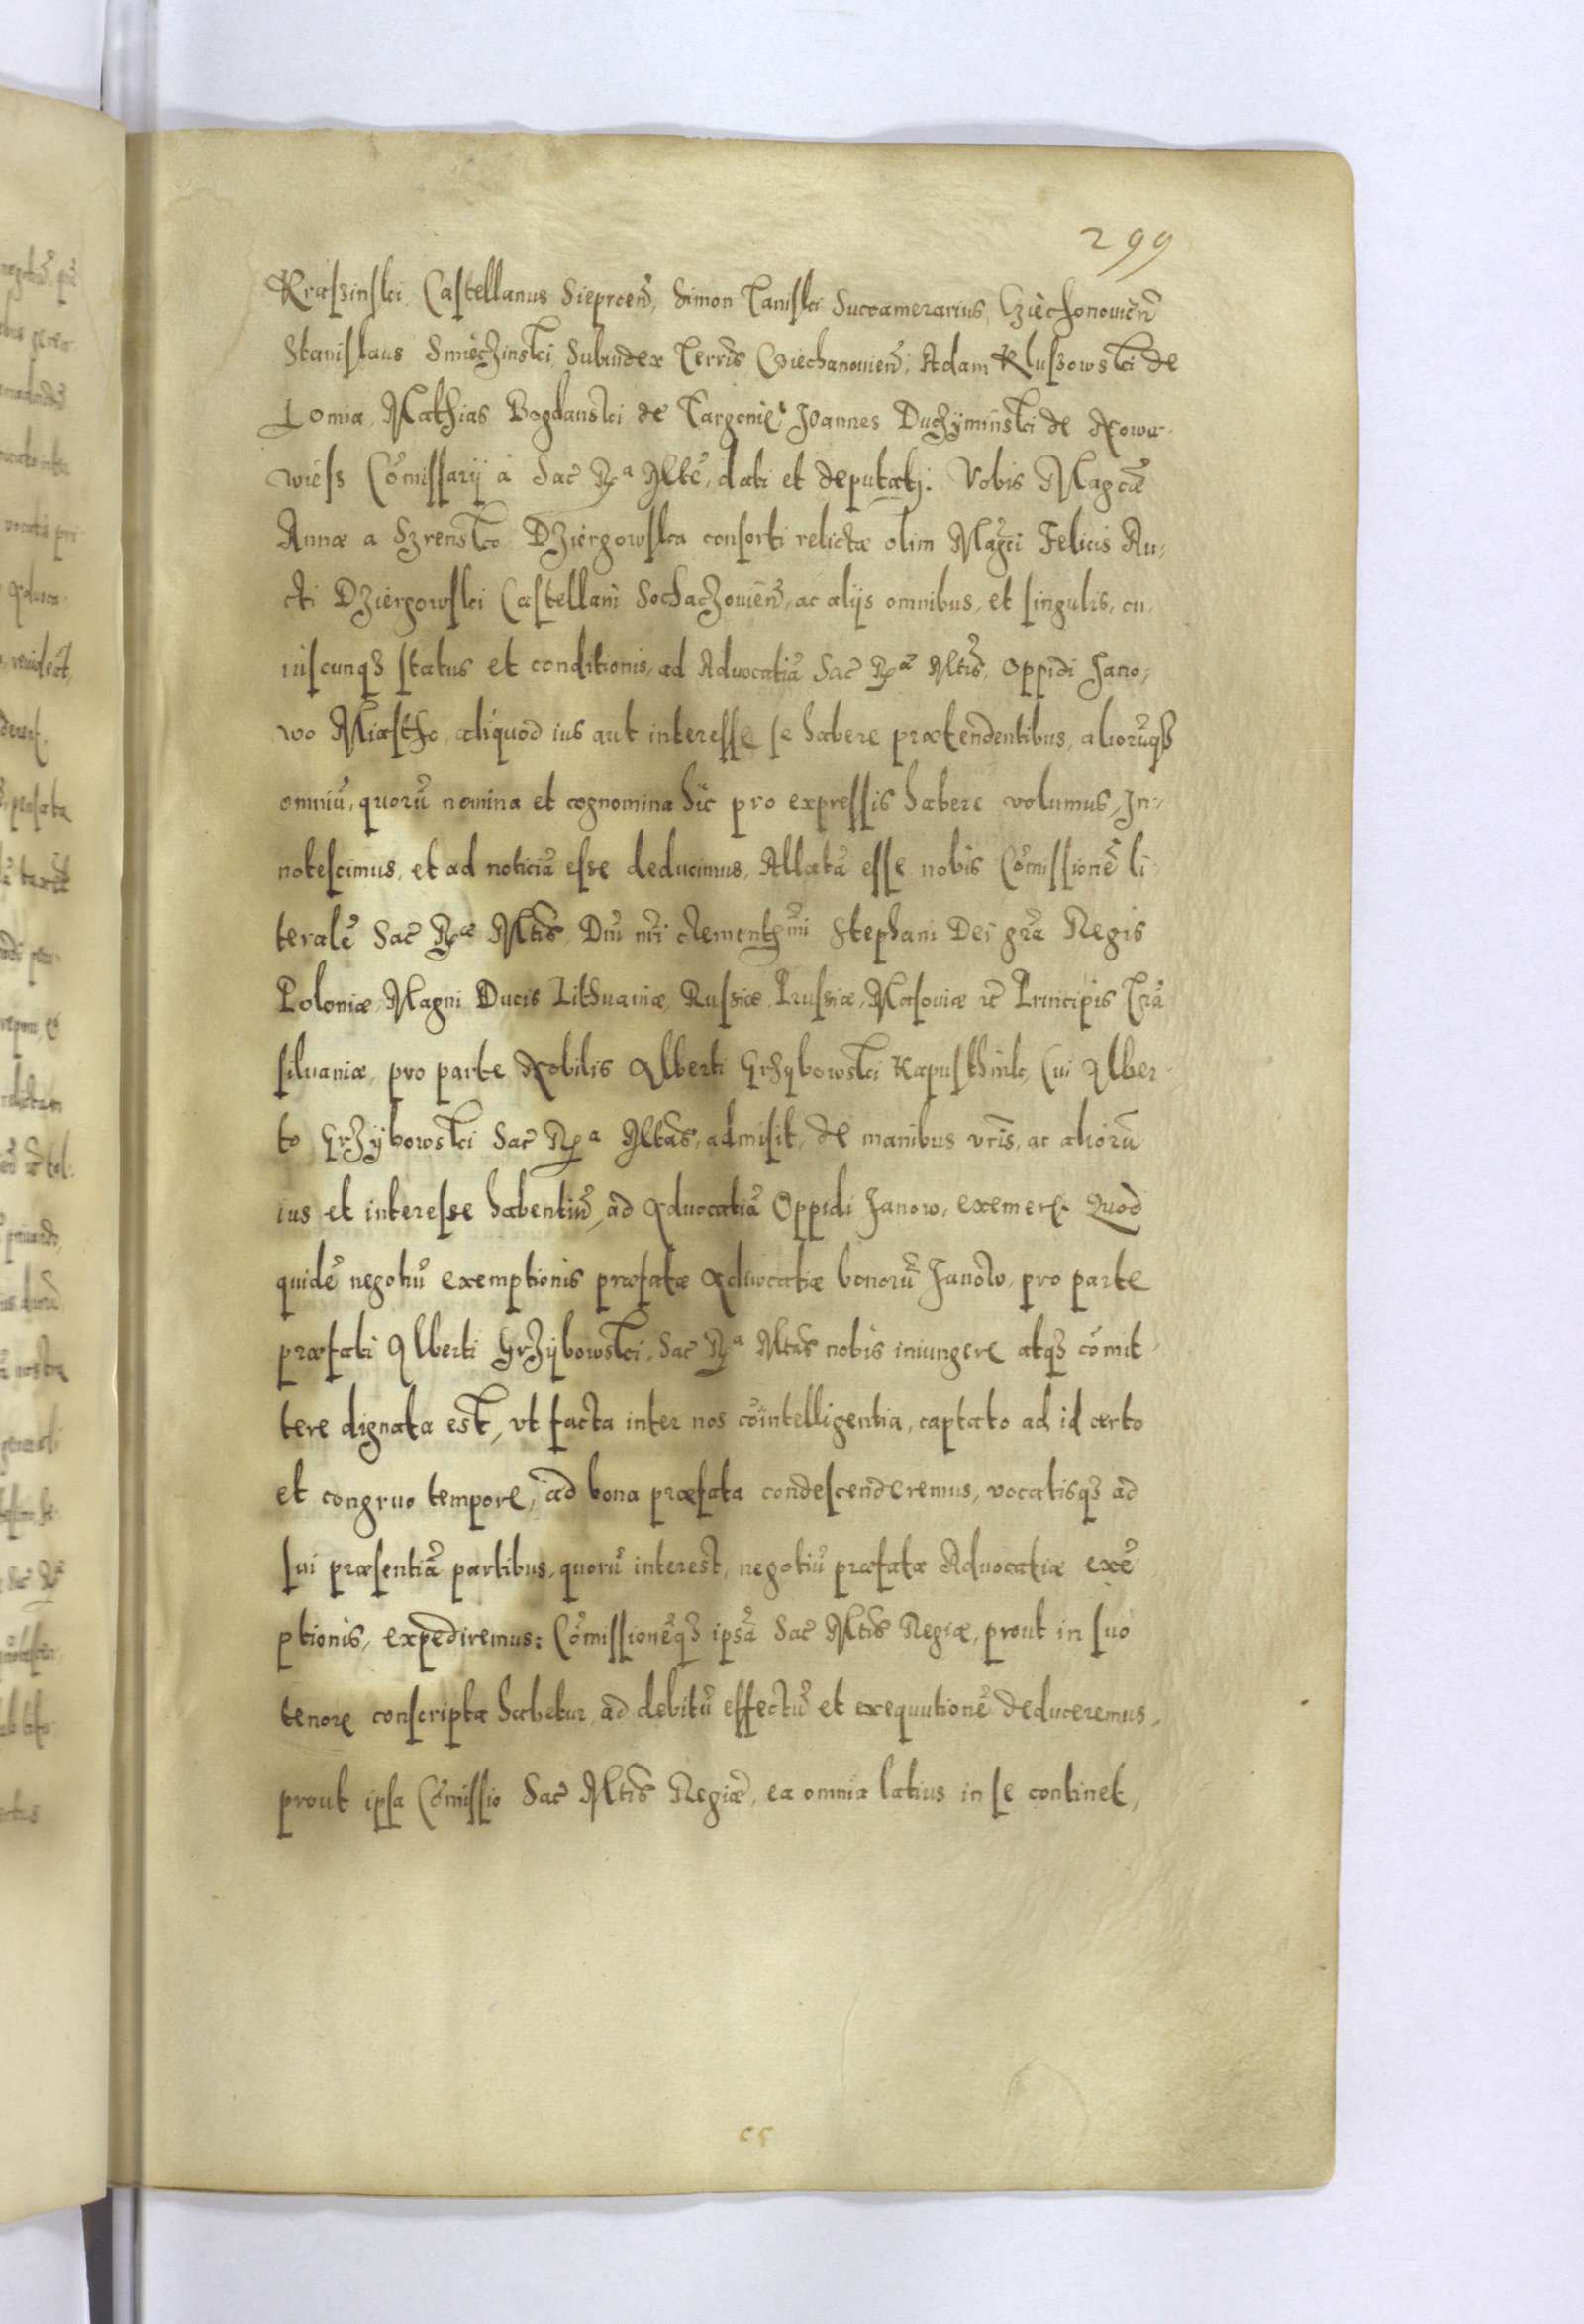 299
Kraſzinſki Caſtellanus Sieprceñ, Simon Taniſki Succamerarius Cziechonouieñ
Staniſlaus Smieczinski Subiudex Terris Cziechanouieñ, Adam Kluſzowski de
Lomia, Mathias Bogdanski de Targonie, Joannes Duczyminski de Nowa
wieſs Cõmiſſarij à Sac̃ Rᵃ Mtẽ, dati et deputatj: Vobis Magcæ̃
Annæ a Szrensko Dziergowſka conſorti relictæ olim Magci Felicis Au,
cti Dziergowſki Caſtellani Sochaczouieñ, ac alijs omnibus, et ſingulis, cu,
iuſcunqȝ ſtatus et conditionis, ad Aduocatiã Sac̃ Rᵃ Mtis, Oppidi Jano,
wo Miaſtho, aliquod ius aut intereſſe ſe habere prætendentibus, alioruqȝ
omniũ, quorũ nomina et cognomina hic pro expreſſis habere volumus, In,
noteſcimus, et ad noticiã eſse deducimus, Allatã eſſe nobis Cõmiſſionẽ li
teralẽ Sac̃ Ræ Mtis, Dni nri clementissmi Stephani Dei gra Regis
Poloniæ, Magni Ducis Lithuaniæ, Ruſsiæ, Pruſsiæ, Maſouiæ etc Principis Trã
ſiluaniæ, pro parte Nobilis Alberti Grzybowski Kapuſthink, Cui Alber
to Grzÿbowski Sac̃ Rᵃ Mtas, admiſit, de manibus vris, ac aliorũ
ius et intereſse habentiũ, ad Aduocatiã Oppidi Janow, eximere. Quod
quidẽ negotiũ exemptionis præfatæ Aduocatiæ bonorũ Janow, pro parte
præfati Alberti Grzÿbowski, Sac̃ Rᵃ Mtas nobis iniungere atqȝ cõmit
tere dignata est, vt facta inter nos cointelligentia, captato ad id certo
et congruo tempore, ad bona præfata condeſcenderemus, vocatisqȝ ad
ſui præſentiã partibus, quorũ interest, negotiũ præfatæ Aduocatiæ exẽ
ptionis, expediremus: Cõmiſſionẽqȝ ipsã Sac̃ Mtis Regiæ, prout in ſuo
tenore conſcripta habetur, ad debitũ effectũ et exequutionẽ deduceremus,
prout ipſa Cõmiſſio Sac̃ Mtis Regiæ, ea omnia latius in ſe continet,